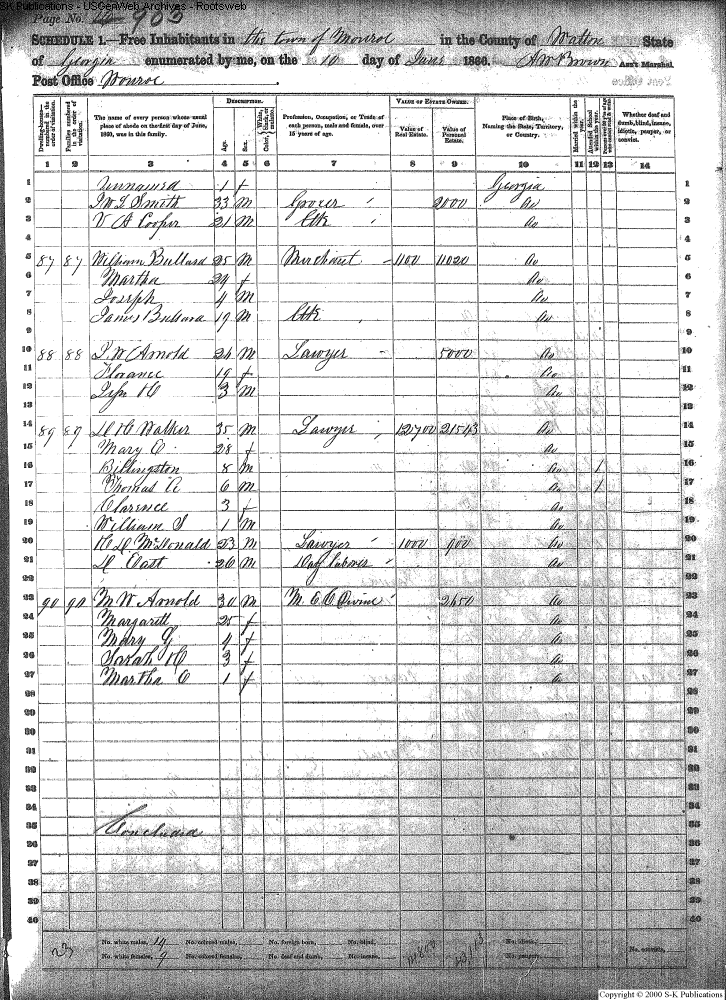 S-K Publications - USGenWeb Archives - Rootsweb
Page No. 903
SCHEDULE 1.—Free Inhabitants in the town of Monroe in the County of Walton State
of Georgia enumerated by me, on the 10 day of June 1860. A W Brown Ass't Marshal.
Post Office Monroe
Dwelling-houses—numbered in the order of visitation.
Families numbered in the order of visitation.
The name of every person whose usual place of abode on the first day of June, 1860, was in this family.
DESCRIPTION.
Age.
Sex.
Color, White, black, or mulatto.
Profession, Occupation, or Trade of each person, male and female, over 15 years of age.
VALUE OF ESTATE OWNED.
Value of Real Estate.
Value of Personal Estate.
Place of Birth, Naming the State, Territory, or Country.
Married within the year.
Attended School within the year.
Whether deaf and dumb, blind, insane, idiotic, pauper, or convict.
1 2 3 4 5 6 7 8 9 10 11 12 13 14
1 Unnamed 1 f Georgia 1
2 J W L Smith 33 M Grocer 2000 Do 2
3 V A Cooper 21 M Clk Do 3
4 4
5 87 87 William Bullard 25 M Merchant 1100 11020 Do 5
6 Martha 24 f Do 6
7 Joseph 4 M Do 7
8 James Bullard 19 M Clk Do 8
9 9
10 88 88 Arnold 24 M Lawyer 5000 Do 10
11 Florance 19 f Do 11
12 3 M Do 12
13 13
14 89 89 Walker 35 M Lawyer 12700 21543 Do 14
15 Mary C 28 f Do 15
16 Billingston 8 M Do 1 16
17 Thomas A 6 M Do 1 17
18 Clarence 3 f Do 18
19 William S 1 M Do 19
20 McDonald 23 M Lawyer 1000 900 Do 20
21 East 26 M Day laborer Do 21
22 22
23 90 90 M W Arnold 30 M M. E. C Divine 2450 Do 23
24 Margarett 25 f Do 24
25 Mary G 4 f Do 25
26 Sarah H 3 f Do 26
27 Martha C 1 f Do 27
28 28
29 29
30 30
31 31
32 32
33 33
34 34
35 Concluded 35
36 36
37 37
38 38
39 39
40 40
23 No. white males, 14 No. colored males, No. foreign born, No. blind, No. idiotic,
No. white females, 9 No. colored females, No. deaf and dumb, No. insane, 14800 No. paupers, No. convicts,
Copyright © 2000 S-K Publications